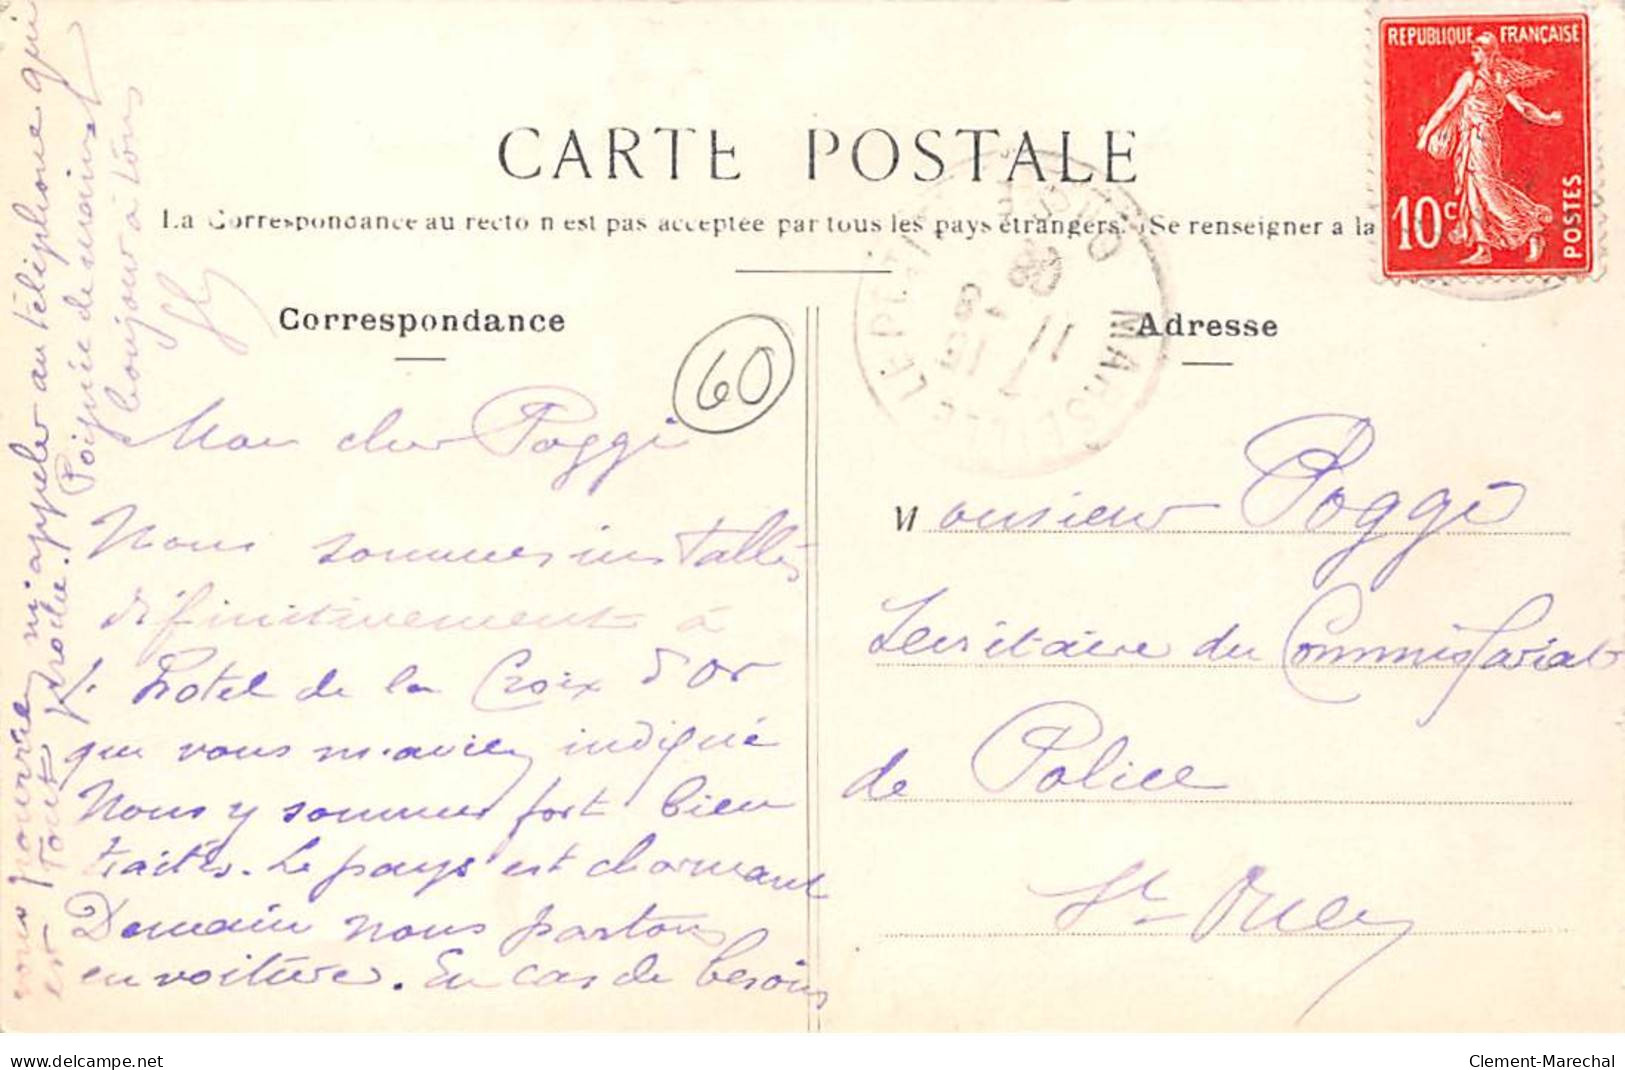 CARTE POSTALE
La Correspondance au recto n est pas acceptée par tous les pays étrangers. (Se renseigner a la
REPUBLIQUE FRANÇAISE
10c
POSTES
MARSEILLE LE PETIT
OISE
Correspondance
60
Mon cher Poggi
Nous sommes installés
définitivement à
l'hotel de la Croix d'or
que vous m'aviez indiqué
Nous y sommes fort bien
traités. Le pays est charmant
Demain nous partons
en voiture. En cas de besoin
vous pourriez m'appeler au téléphone qui
est tout proche. Poignée de mains et
bonjour à tous
Adresse
Monsieur Poggi
Secrétaire du Commissariat
de Police
St Ouen
www.delcampe.net
Clement-Marechal